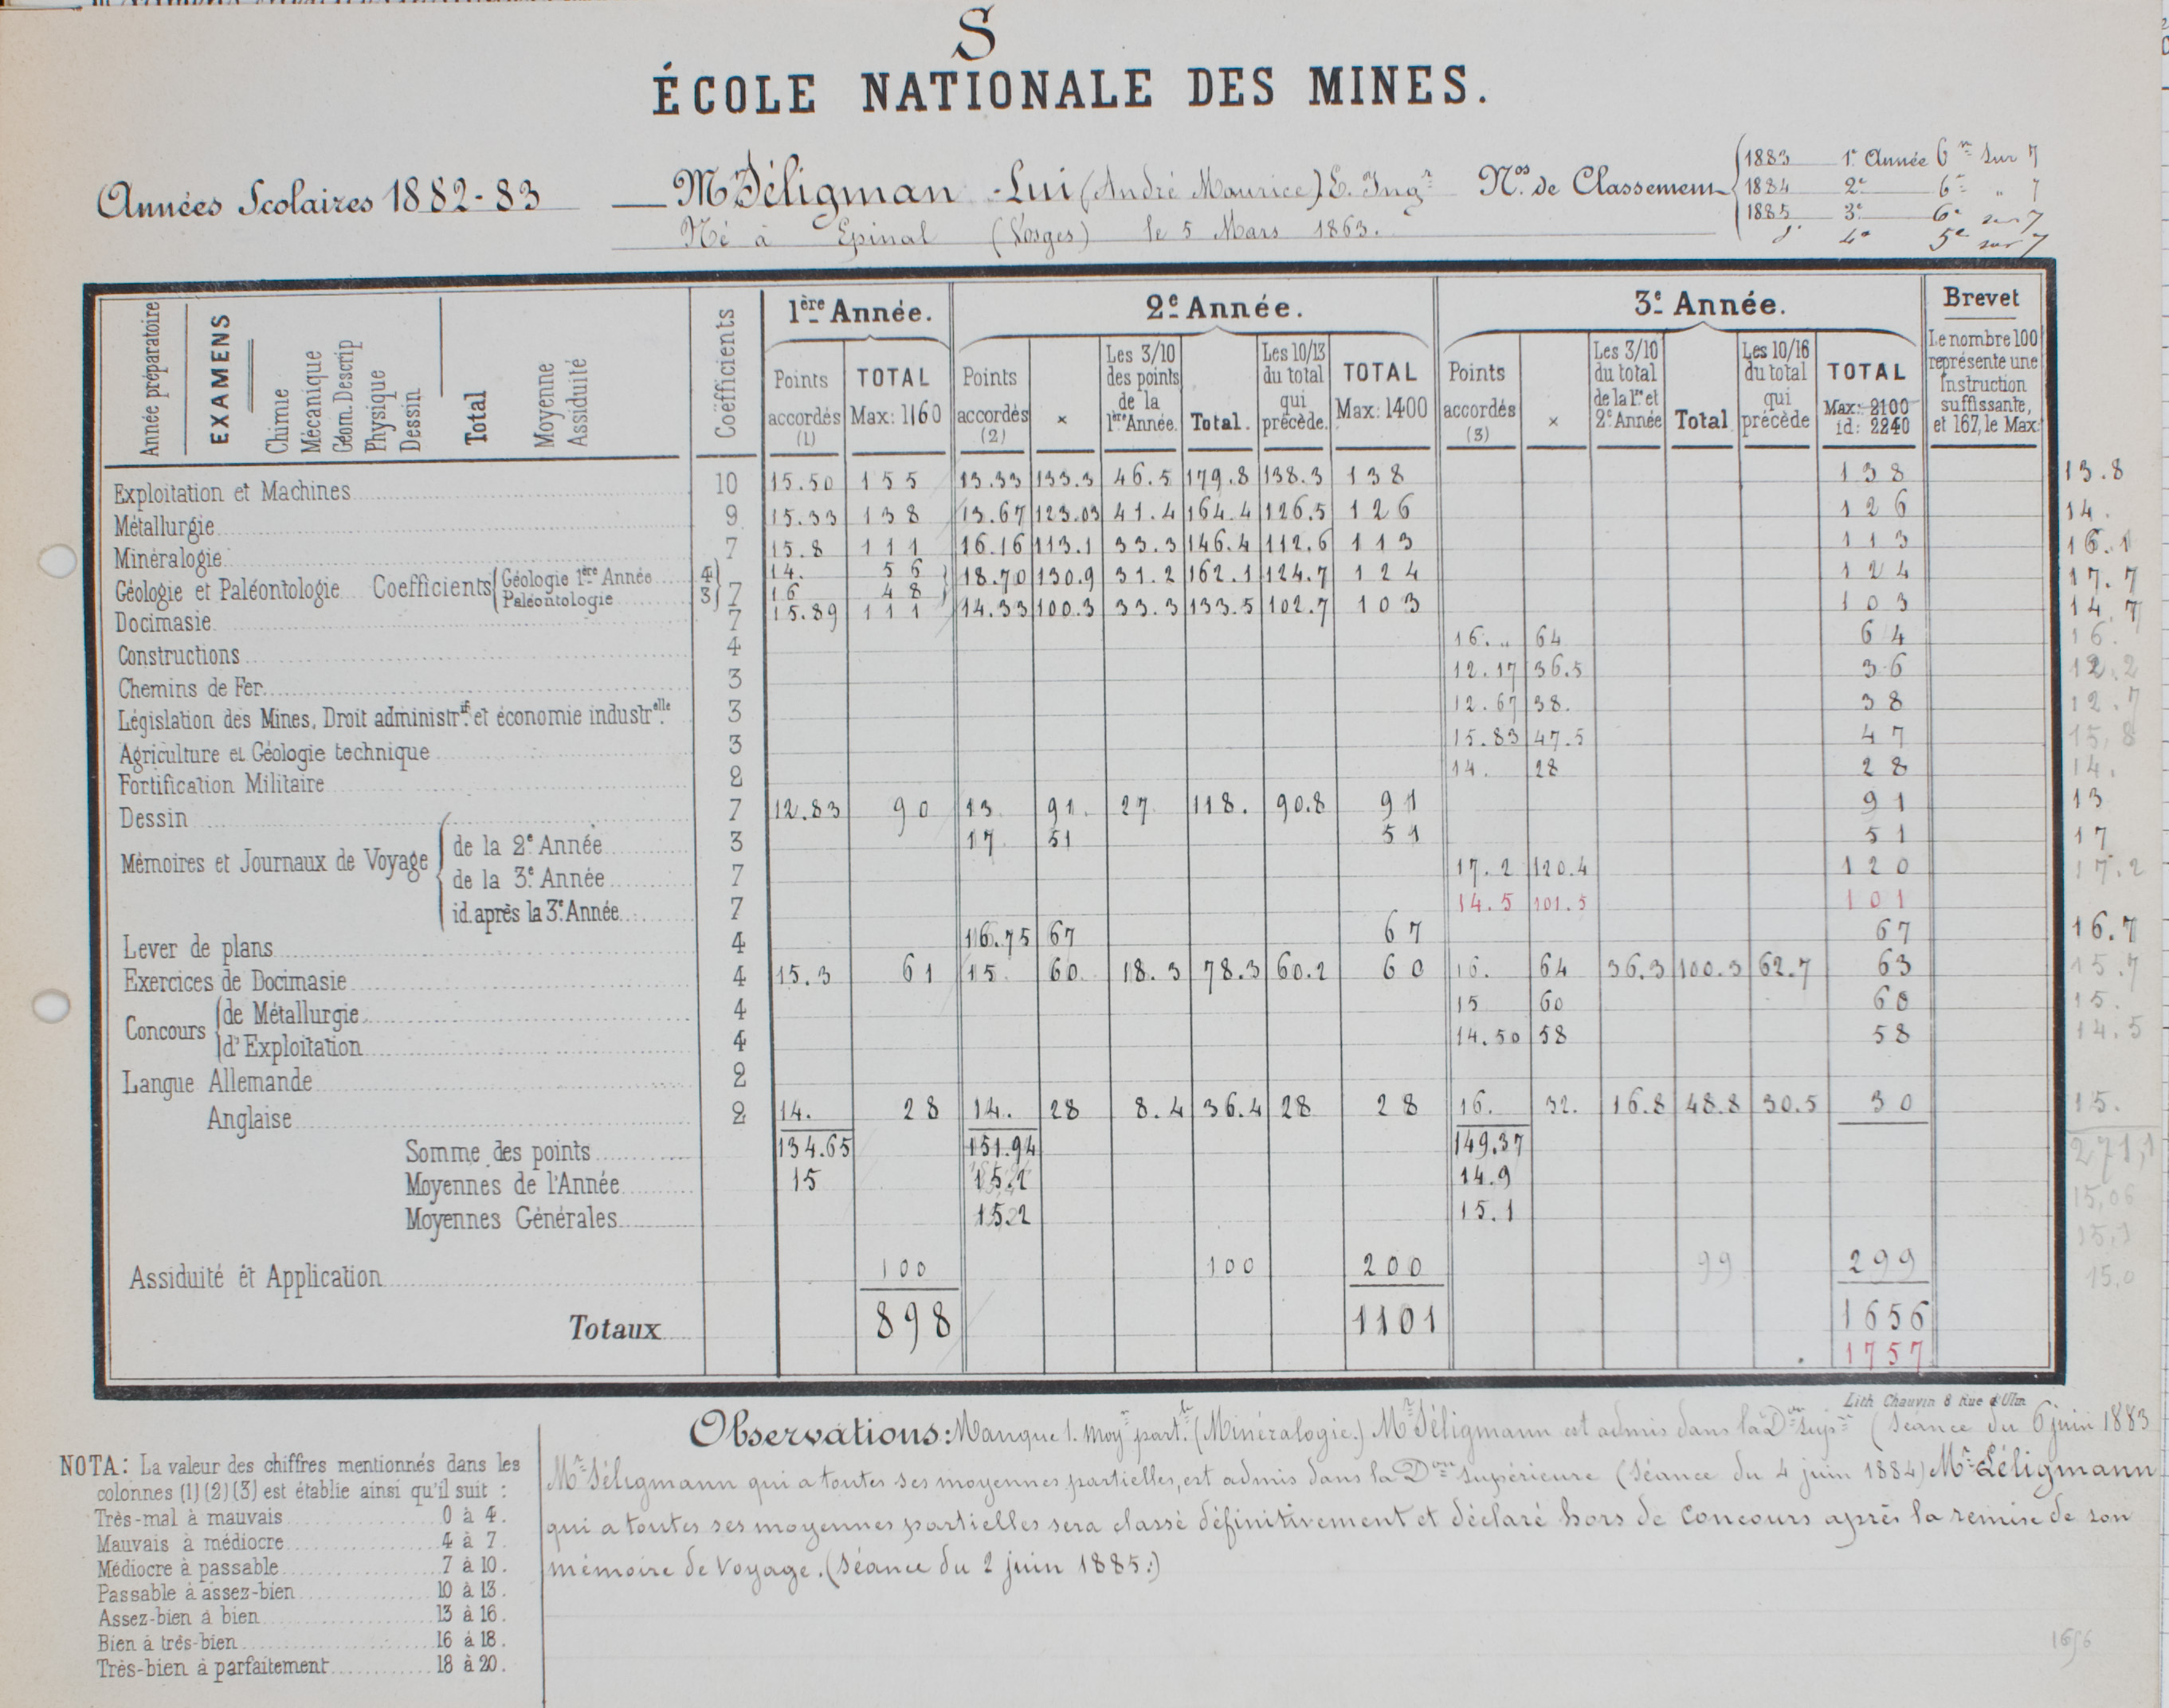 S
ÉCOLE NATIONALE DES MINES.
Années Scolaires 1882-83 M Séligman-Lui (André Maurice) E. Ingr Nos de Classement
1883 1e Année 6e sur 7
1884 2e 6e " 7
1885 3e 6e sur 7
do 4e 5e sur 7
Né à Epinal (Vosges) le 5 Mars 1863.
Année préparatoire
EXAMENS
Chimie
Mécanique
Géom. Descrip
Physique
Dessin
Total
Moyenne
Assiduité
Coëfficients
1ère Année. 2e Année. 3e Année. Brevet
Points accordés (1) TOTAL Max: 1160 Points accordés (2) × Les 3/10 des points de la 1ère Année. Total. Les 10/13 du total qui précède. TOTAL Max: 1400 Points accordés (3) × Les 3/10 du total de la 1re et 2e Année Total Les 10/16 du total qui précède TOTAL Max: 2100 id: 2240 Le nombre 100 représente une Instruction suffissante, et 167, le Max:
Exploitation et Machines 10 15.50 155 13.33 133.3 46.5 179.8 138.3 138 138 13.8
Métallurgie 9 15.33 138 13.67 123.03 41.4 164.4 126.5 126 126 14.
Minéralogie 7 15.8 111 16.16 113.1 33.3 146.4 112.6 113 113 16.1
Géologie et Paléontologie Coefficients Géologie 1ère Année 4 14. 56
Paléontologie 3 7 16 48 18.70 130.9 31.2 162.1 124.7 124 124 17.7
Docimasie 7 15.89 111 14.33 100.3 33.3 133.5 102.7 103 103 14.7
Constructions 4 16. " 64 64 16.
Chemins de Fer 3 12.17 36.5 36 12.2
Législation des Mines, Droit administrif. et économie industrelle. 3 12.67 38. 38 12.7
Agriculture et Géologie technique 3 15.83 47.5 47 15,8
Fortification Militaire 2 14. 28 28 14.
Dessin 7 12.83 90 13 91. 27 118. 90.8 91 91 13
Mémoires et Journaux de Voyage
de la 2e Année 3 17 51 51 51 17
de la 3e Année 7 17.2 120.4 120 17.2
id. après la 3e Année 7 14.5 101.5 101
Lever de plans 4 16.75 67 67 67 16.7
Exercices de Docimasie 4 15.3 61 15 60 18.3 78.3 60.2 60 16. 64 36.3 100.3 62.7 63 15.7
Concours
de Métallurgie 4 15 60 60 15.
d'Exploitation 4 14.50 58 58 14.5
Langue Allemande 2
Anglaise 2 14. 28 14. 28 8.4 36.4 28 28 16. 32. 16.8 48.8 30.5 30 15.
Somme des points 134.65 151.94 149.37 271,1
Moyennes de l'Année 15 15.2 14.9 15,06
Moyennes Générales 15.2 15.1
Assiduité et Application 100 100 200 99 299 15,0
Totaux 898 1101 1656
1757
Lith. Chauvin 8 Rue d'Ulm
Observations: Manque 1. moyne part.le (Minéralogie.) Mr Séligmann est admis dans la Don supre (Séance du 6 juin 1883
Mr Séligmann qui a toutes ses moyennes partielles, est admis dans la Don supérieure (Séance du 4 juin 1884) Mr Séligmann
qui a toutes ses moyennes partielles sera classé définitivement et déclaré hors de Concours après la remise de son
mémoire de Voyage. (Séance du 2 juin 1885.)
NOTA: La valeur des chiffres mentionnés dans les
colonnes (1) (2) (3) est établie ainsi qu'il suit :
Très-mal à mauvais 0 à 4.
Mauvais à médiocre 4 à 7.
Médiocre à passable 7 à 10.
Passable à assez-bien 10 à 13.
Assez-bien à bien 13 à 16.
Bien à très-bien 16 à 18.
Très-bien à parfaitement 18 à 20.
1656